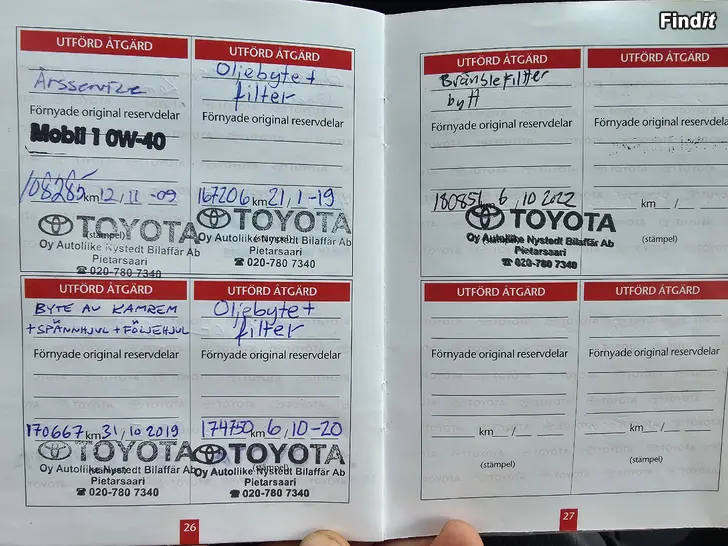 Findit
UTFÖRD ÅTGÄRD
Årsservice
Förnyade original reservdelar
Mobil 1 0W-40
108285 km 12, 11 -09
TOYOTA
(stämpel)
Oy Autoliike Nystedt Bilaffär Ab
Pietarsaari
☎ 020-780 7340
UTFÖRD ÅTGÄRD
Oljebyte +
filter
Förnyade original reservdelar
167206 km 21, 1 -19
TOYOTA
(stämpel)
Oy Autoliike Nystedt Bilaffär Ab
Pietarsaari
☎ 020-780 7340
UTFÖRD ÅTGÄRD
BYTE AV KAMREM
+SPÄNNHJUL +FÖLJEHJUL
Förnyade original reservdelar
170667 km 31, 10 2019
TOYOTA
Oy Autoliike Nystedt Bilaffär Ab
Pietarsaari
☎ 020-780 7340
UTFÖRD ÅTGÄRD
Oljebyte +
filter
Förnyade original reservdelar
174750 km 6, 10 -20
TOYOTA
(stämpel)
Oy Autoliike Nystedt Bilaffär Ab
Pietarsaari
☎ 020-780 7340
26
UTFÖRD ÅTGÄRD
Bränslefilter
bytt
Förnyade original reservdelar
180851 6, 10 2022
TOYOTA
Oy Autoliike Nystedt Bilaffär Ab
Pietarsaari
☎ 020-780 7340
UTFÖRD ÅTGÄRD
Förnyade original reservdelar
km /
(stämpel)
UTFÖRD ÅTGÄRD
Förnyade original reservdelar
km /
(stämpel)
UTFÖRD ÅTGÄRD
Förnyade original reservdelar
km /
(stämpel)
27